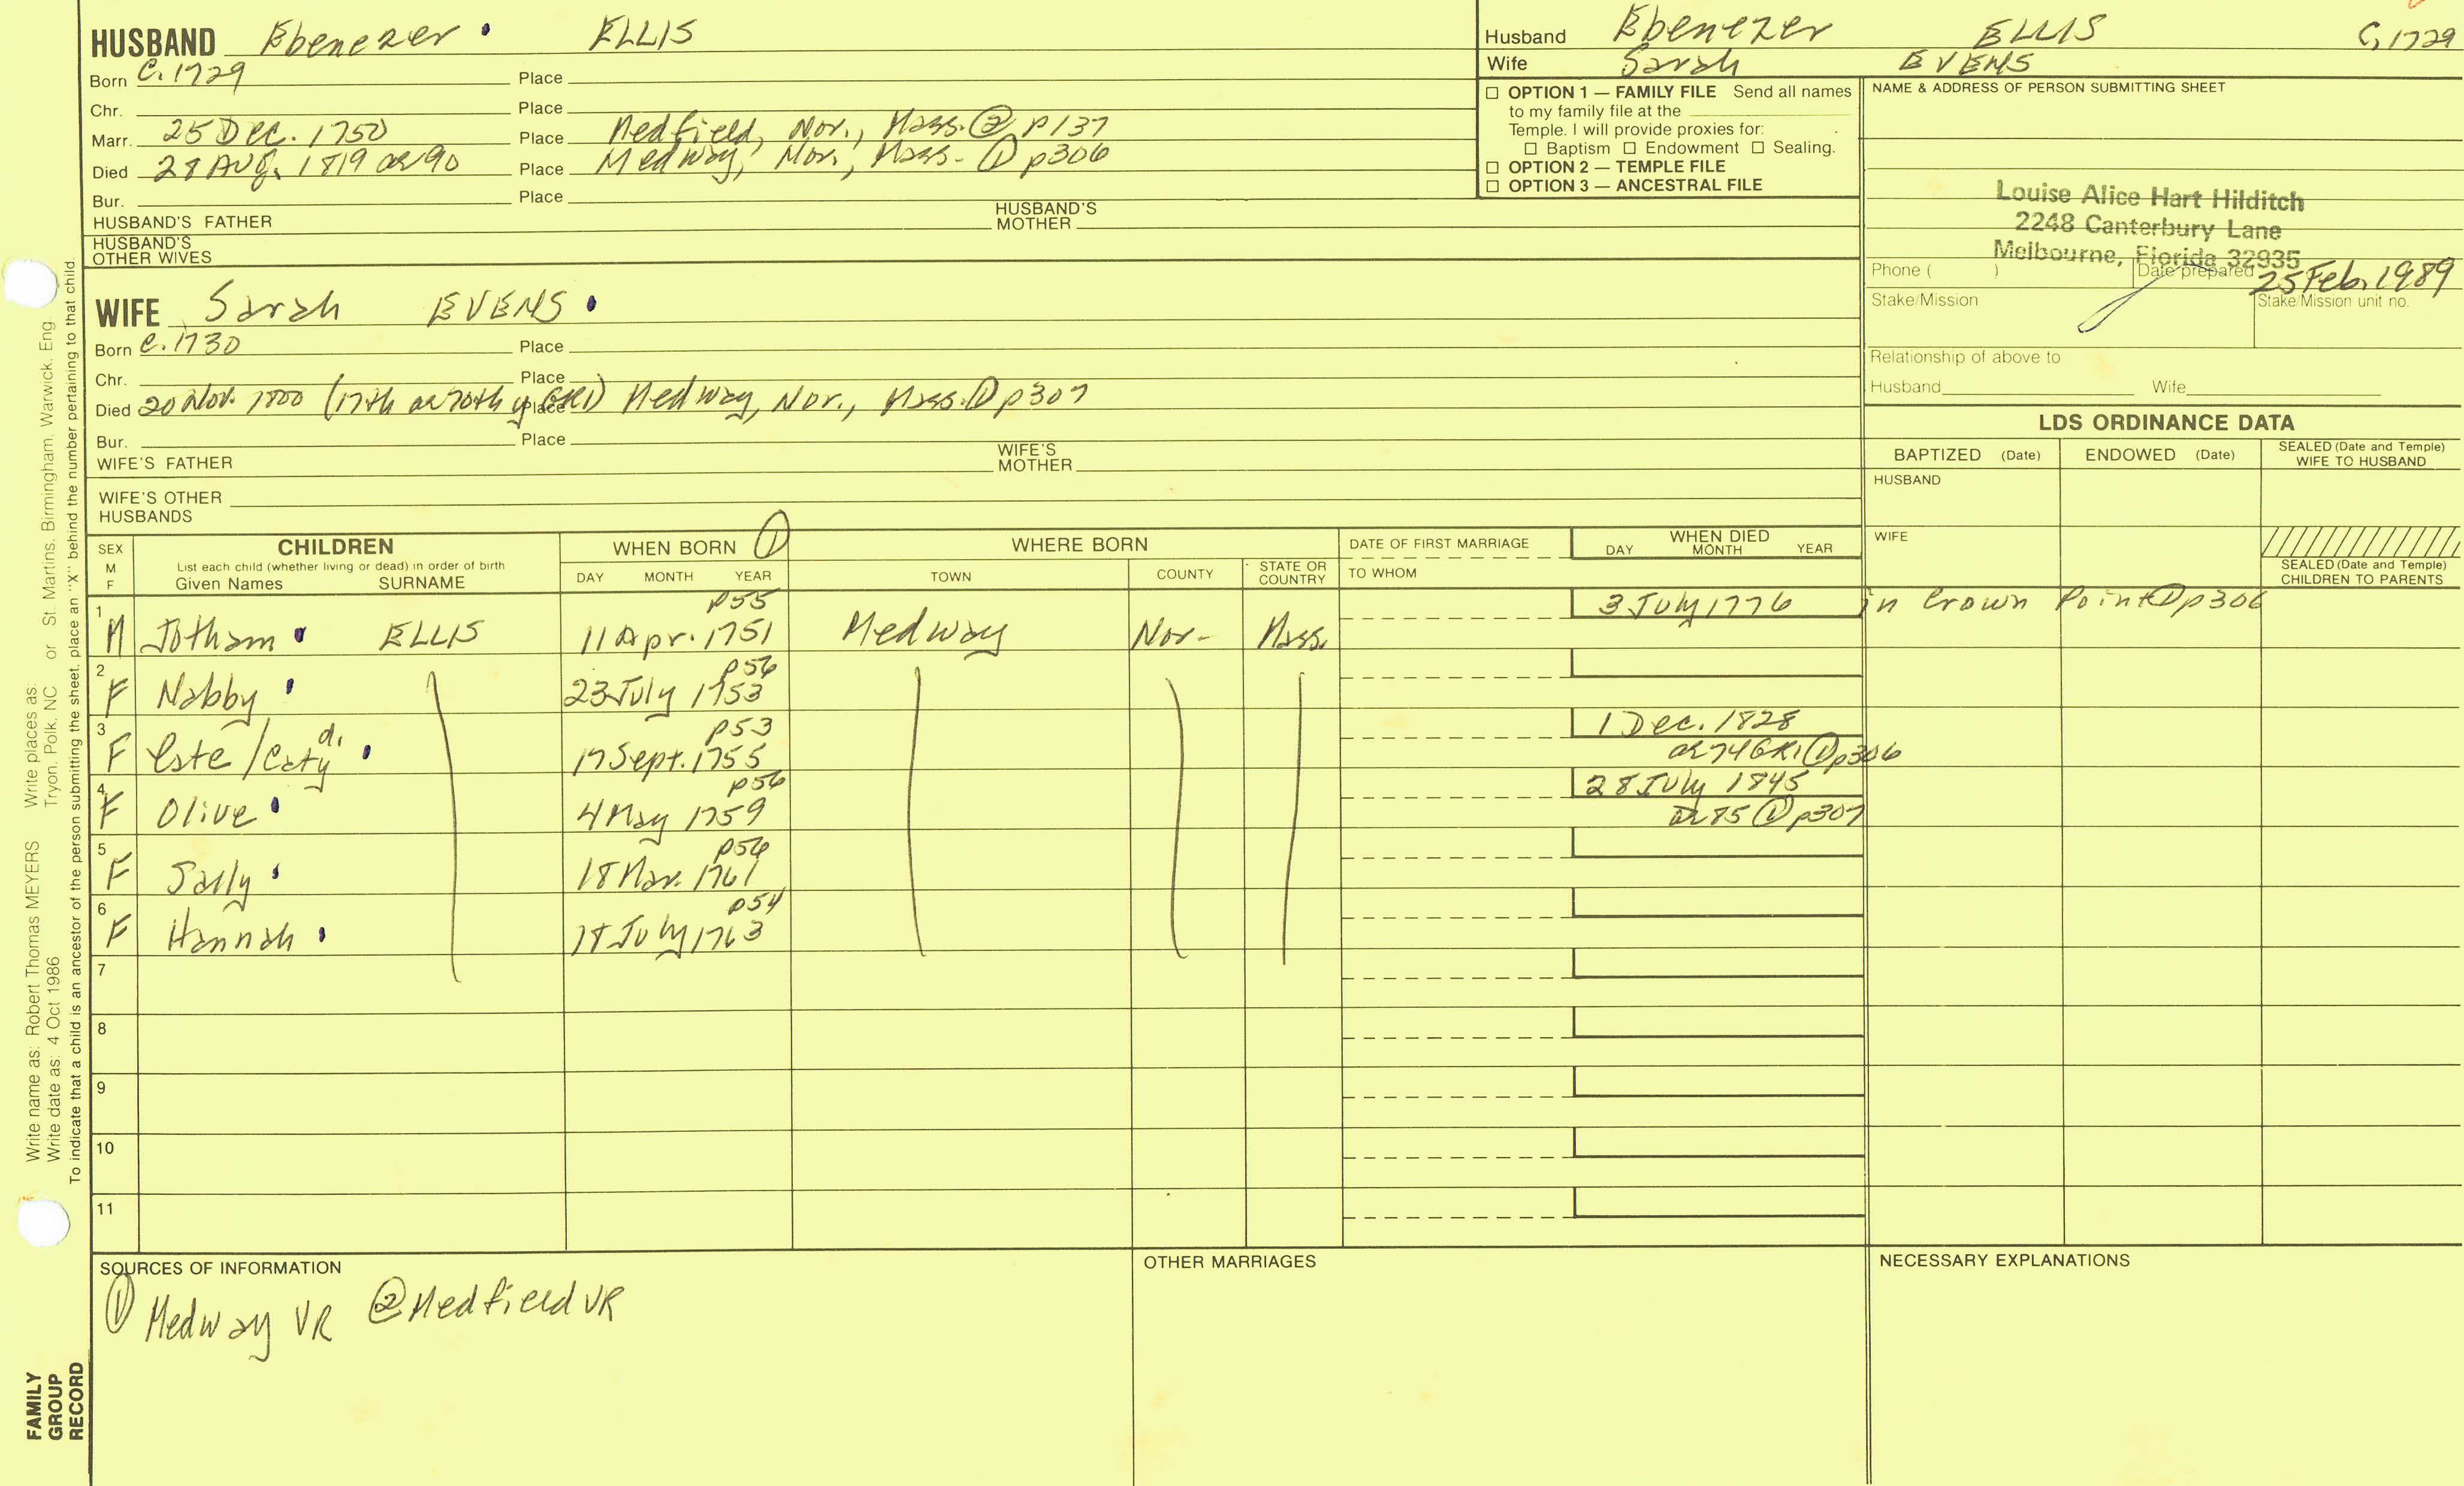 HUSBAND Ebenezer ELLIS
Born C. 1729 Place
Chr. Place
Marr. 25 Dec. 1750 Place Medfield, Nor., Mass. ② p137
Died 28 Aug. 1819 ae 90 Place Medway, Nor., Mass. ① p306
Bur. Place
HUSBAND'S FATHER HUSBAND'S MOTHER
HUSBAND'S OTHER WIVES
Husband Ebenezer ELLIS C. 1729
Wife Sarah EVENS
☐ OPTION 1 — FAMILY FILE Send all names
to my family file at the
Temple. I will provide proxies for:
☐ Baptism ☐ Endowment ☐ Sealing.
☐ OPTION 2 — TEMPLE FILE
☐ OPTION 3 — ANCESTRAL FILE
NAME & ADDRESS OF PERSON SUBMITTING SHEET
Louise Alice Hart Hilditch
2248 Canterbury Lane
Melbourne, Florida 32935
Phone ( ) Date prepared 25 Feb. 1989
Stake/Mission Stake/Mission unit no.
Relationship of above to
Husband Wife
WIFE Sarah EVENS
Born C. 1730 Place
Chr. Place
Died 20 Nov. 1800 (17th ae 70th y GR1) Place Medway, Nor., Mass. ① p307
Bur. Place
WIFE'S FATHER WIFE'S MOTHER
WIFE'S OTHER HUSBANDS
LDS ORDINANCE DATA
BAPTIZED (Date) ENDOWED (Date) SEALED (Date and Temple) WIFE TO HUSBAND
HUSBAND
WIFE
SEALED (Date and Temple) CHILDREN TO PARENTS
SEX M F
CHILDREN
List each child (whether living or dead) in order of birth
Given Names SURNAME
WHEN BORN ①
DAY MONTH YEAR
WHERE BORN
TOWN COUNTY STATE OR COUNTRY
DATE OF FIRST MARRIAGE
TO WHOM
WHEN DIED
DAY MONTH YEAR
1 M Jotham ELLIS p55 11 Apr. 1751 Medway Nor. Mass. 3 July 1776 in Crown Point ① p306
2 F Nabby p56 23 July 1753
3 F Este/Caty d. p53 17 Sept. 1755 1 Dec. 1828 ae 74 GR1 ① p306
4 F Olive p56 4 May 1759 28 July 1845 ae 85 ① p307
5 F Sarly p56 18 Mar. 1761
6 F Hannah p54 18 July 1763
7
8
9
10
11
SOURCES OF INFORMATION
① Medway VR ② Medfield VR
OTHER MARRIAGES
NECESSARY EXPLANATIONS
Write name as: Robert Thomas MEYERS Write places as: St. Martins, Birmingham, Warwick, Eng.
Write date as: 4 Oct 1986 or Tryon, Polk, NC
To indicate that a child is an ancestor of the person submitting the sheet, place an "X" behind the number pertaining to that child.
FAMILY
GROUP
RECORD